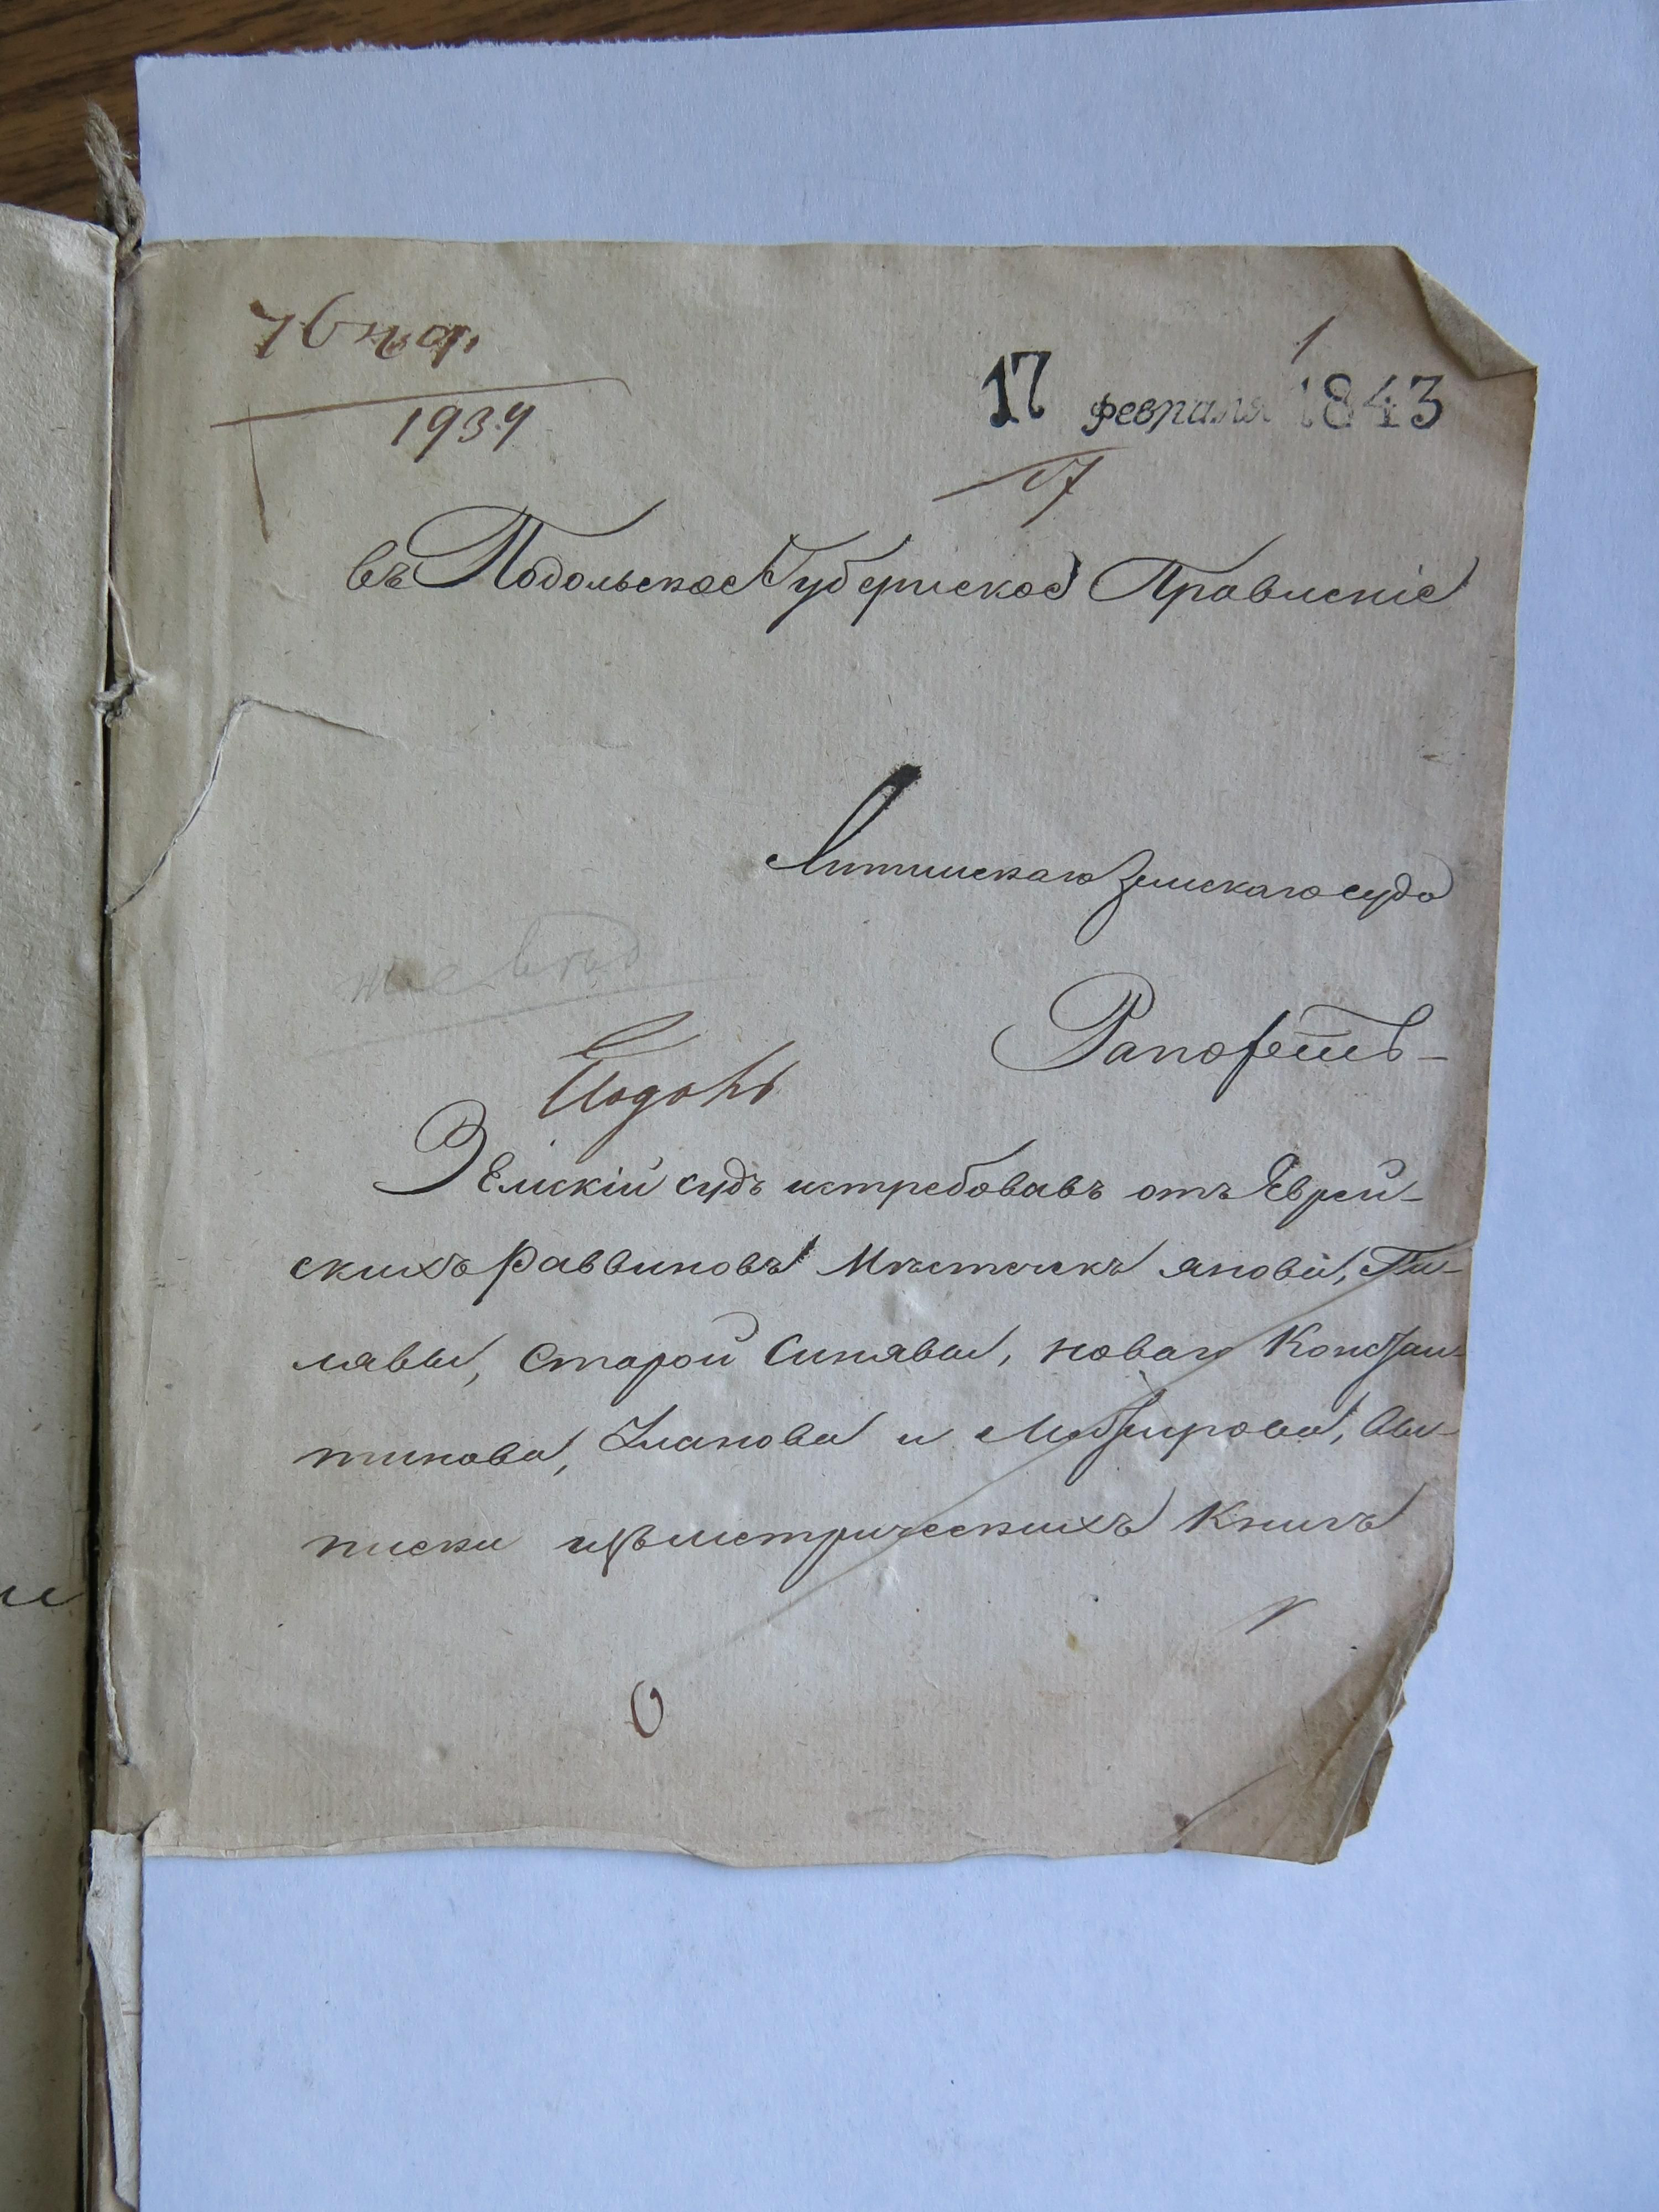 1
17 февраля 1843
1939
17
въ Подольское Губернское Правленіе
Литинскаго Земскаго суда
Рапортъ
Земскій судъ истребовавъ отъ Еврей-
скихъ Раввиновъ Мѣстечекъ Яновы, Пи-
лявы, Старой Синявы, новаго Констан-
тинова, Уланова и Межирова, вы-
писки изъ метрическихъ книгъ